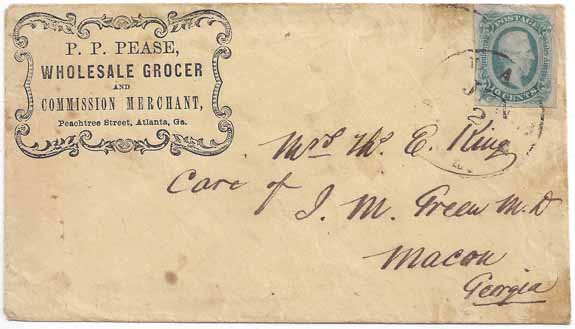 P. P. PEASE,
WHOLESALE GROCER
AND
COMMISSION MERCHANT,
Peachtree Street, Atlanta, Ga.
POSTAGE
CENTS
A
Mrs. M. E. King
Care of
J. M. Green M.D
Macon
Georgia